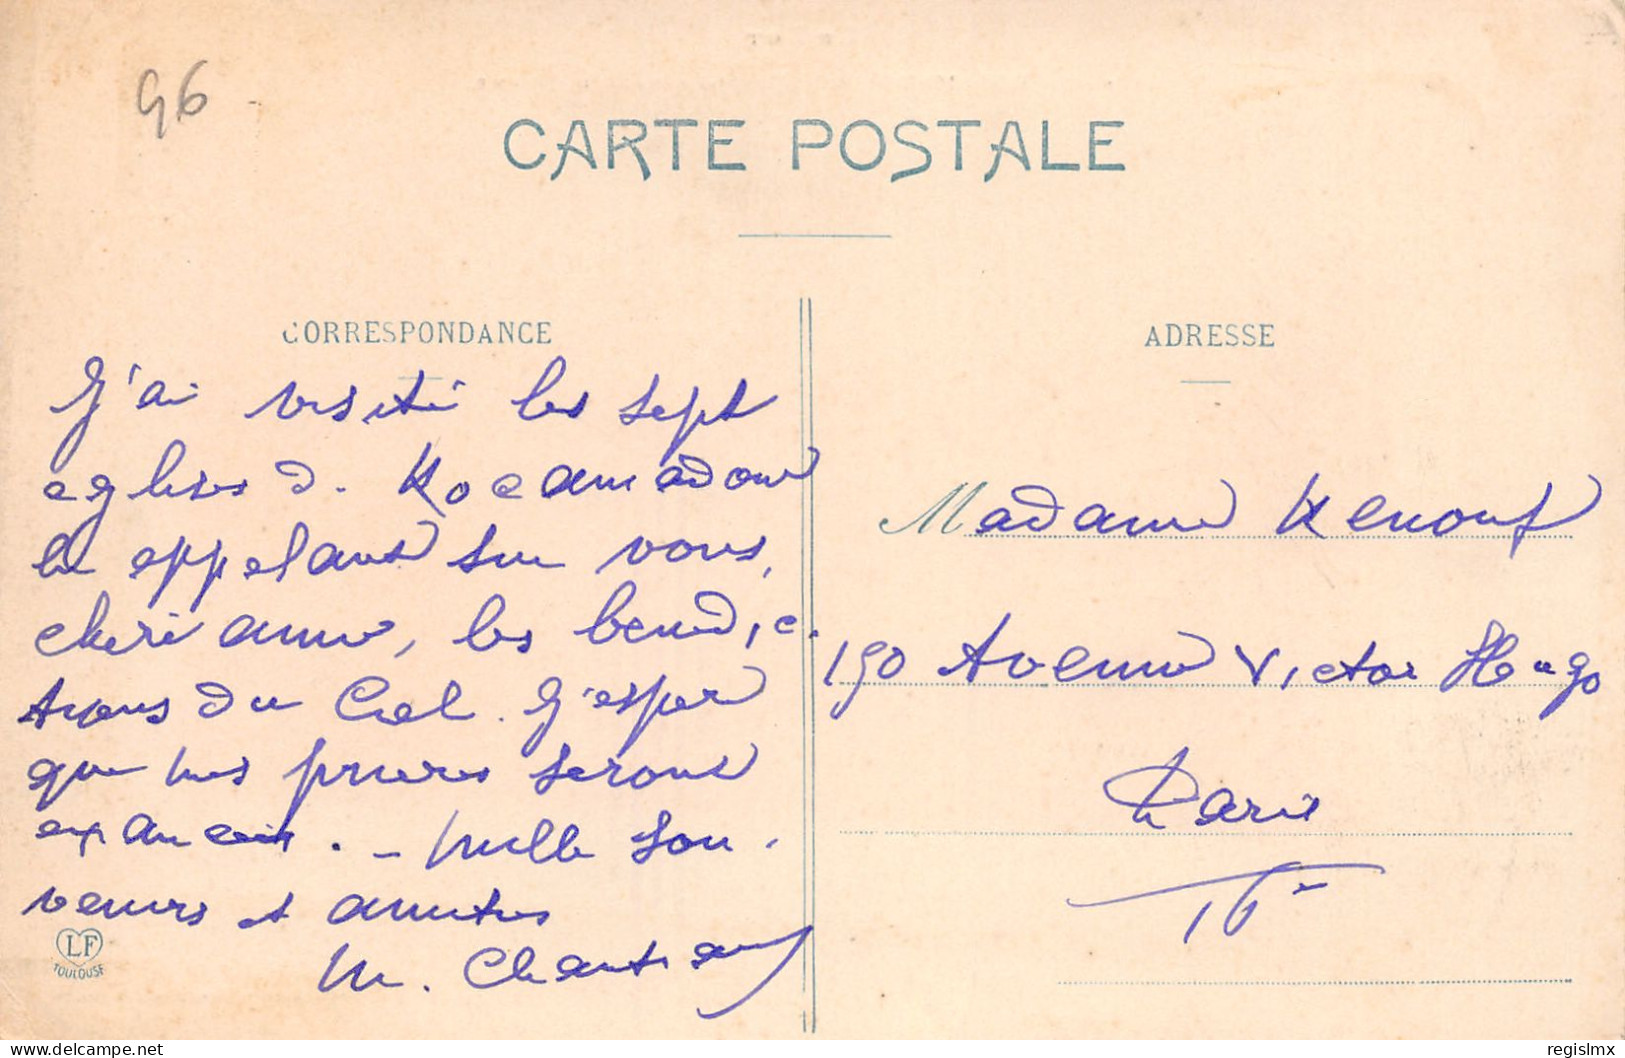 96
CARTE POSTALE
CORRESPONDANCE
J'ai visité les sept
eglises de Rocamadour
en appelant sur vous,
cherie amie, les benedic-
tions du Ciel. J'espere
que mes prieres seront
exaucées. - Mille sou-
venirs et amities
M.
LF
TOULOUSE
ADRESSE
Madame Renouf
190 Avenue Victor Hugo
Paris
16e
delcampe.net
regislmx